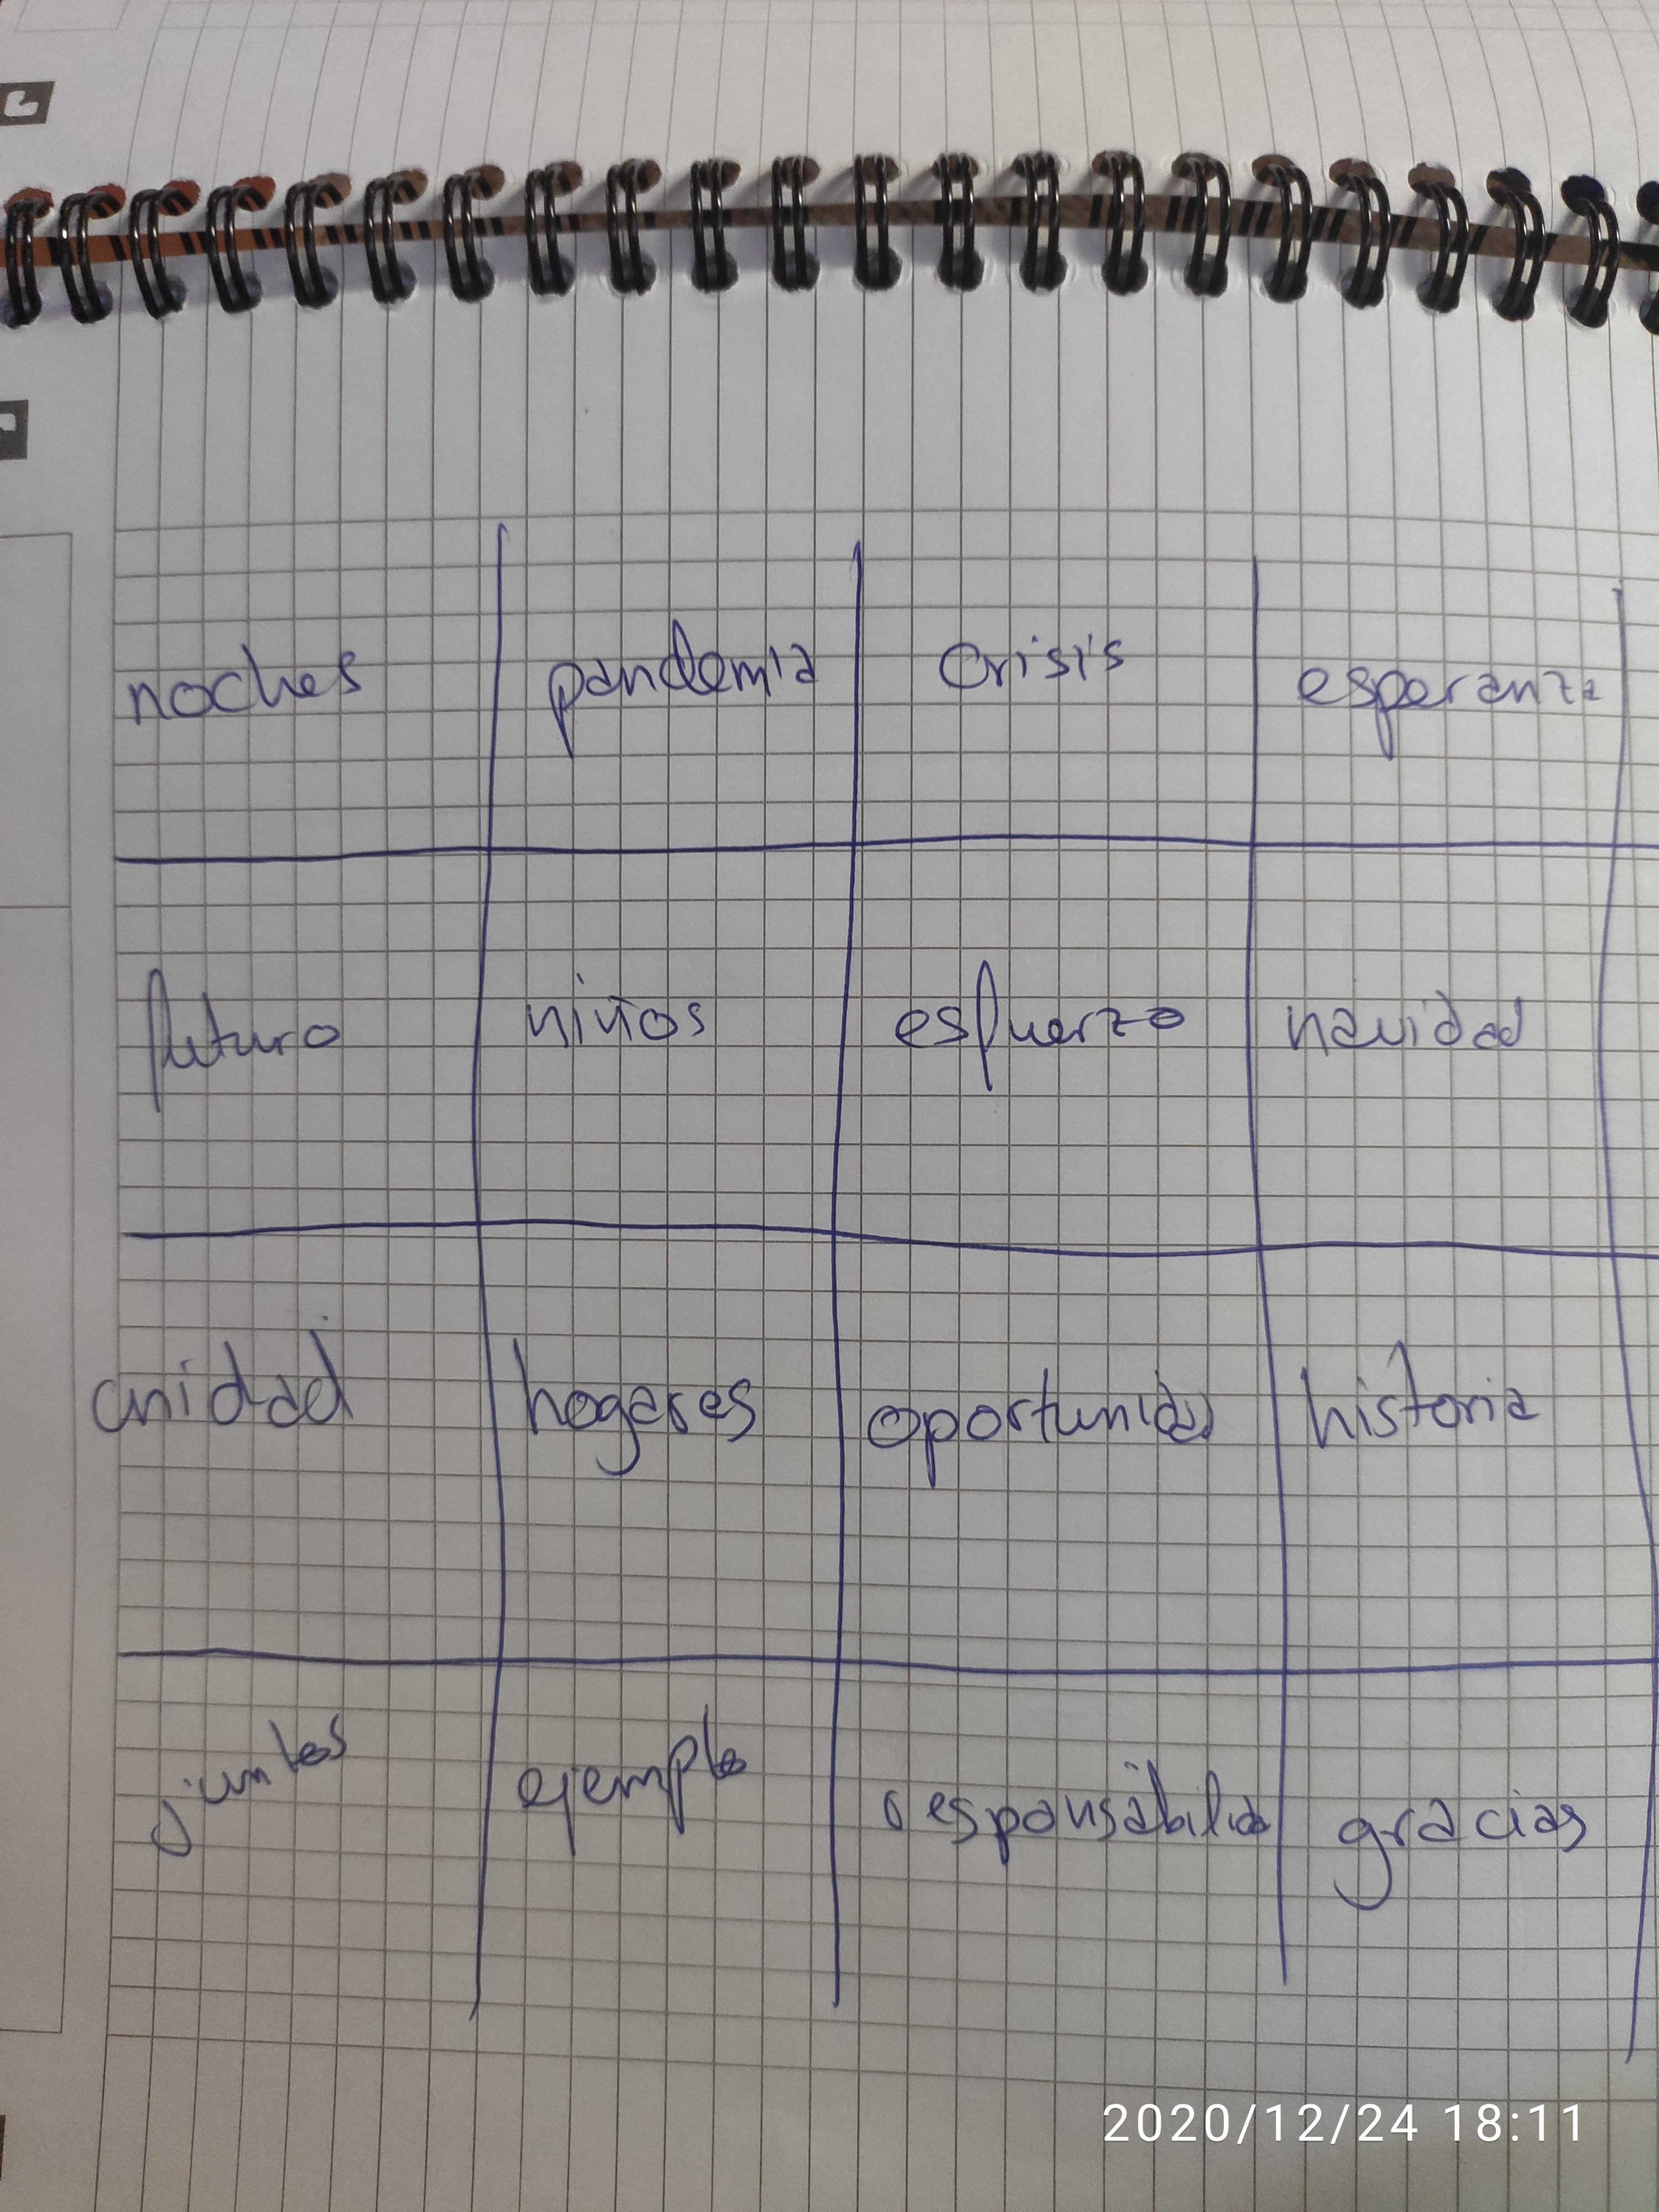 noches pandemia crisis esperanza
futuro niños esfuerzo navidad
unidad hogares oportunidad historia
juntos ejemplo responsabilid gracias
2020/12/24 18:11